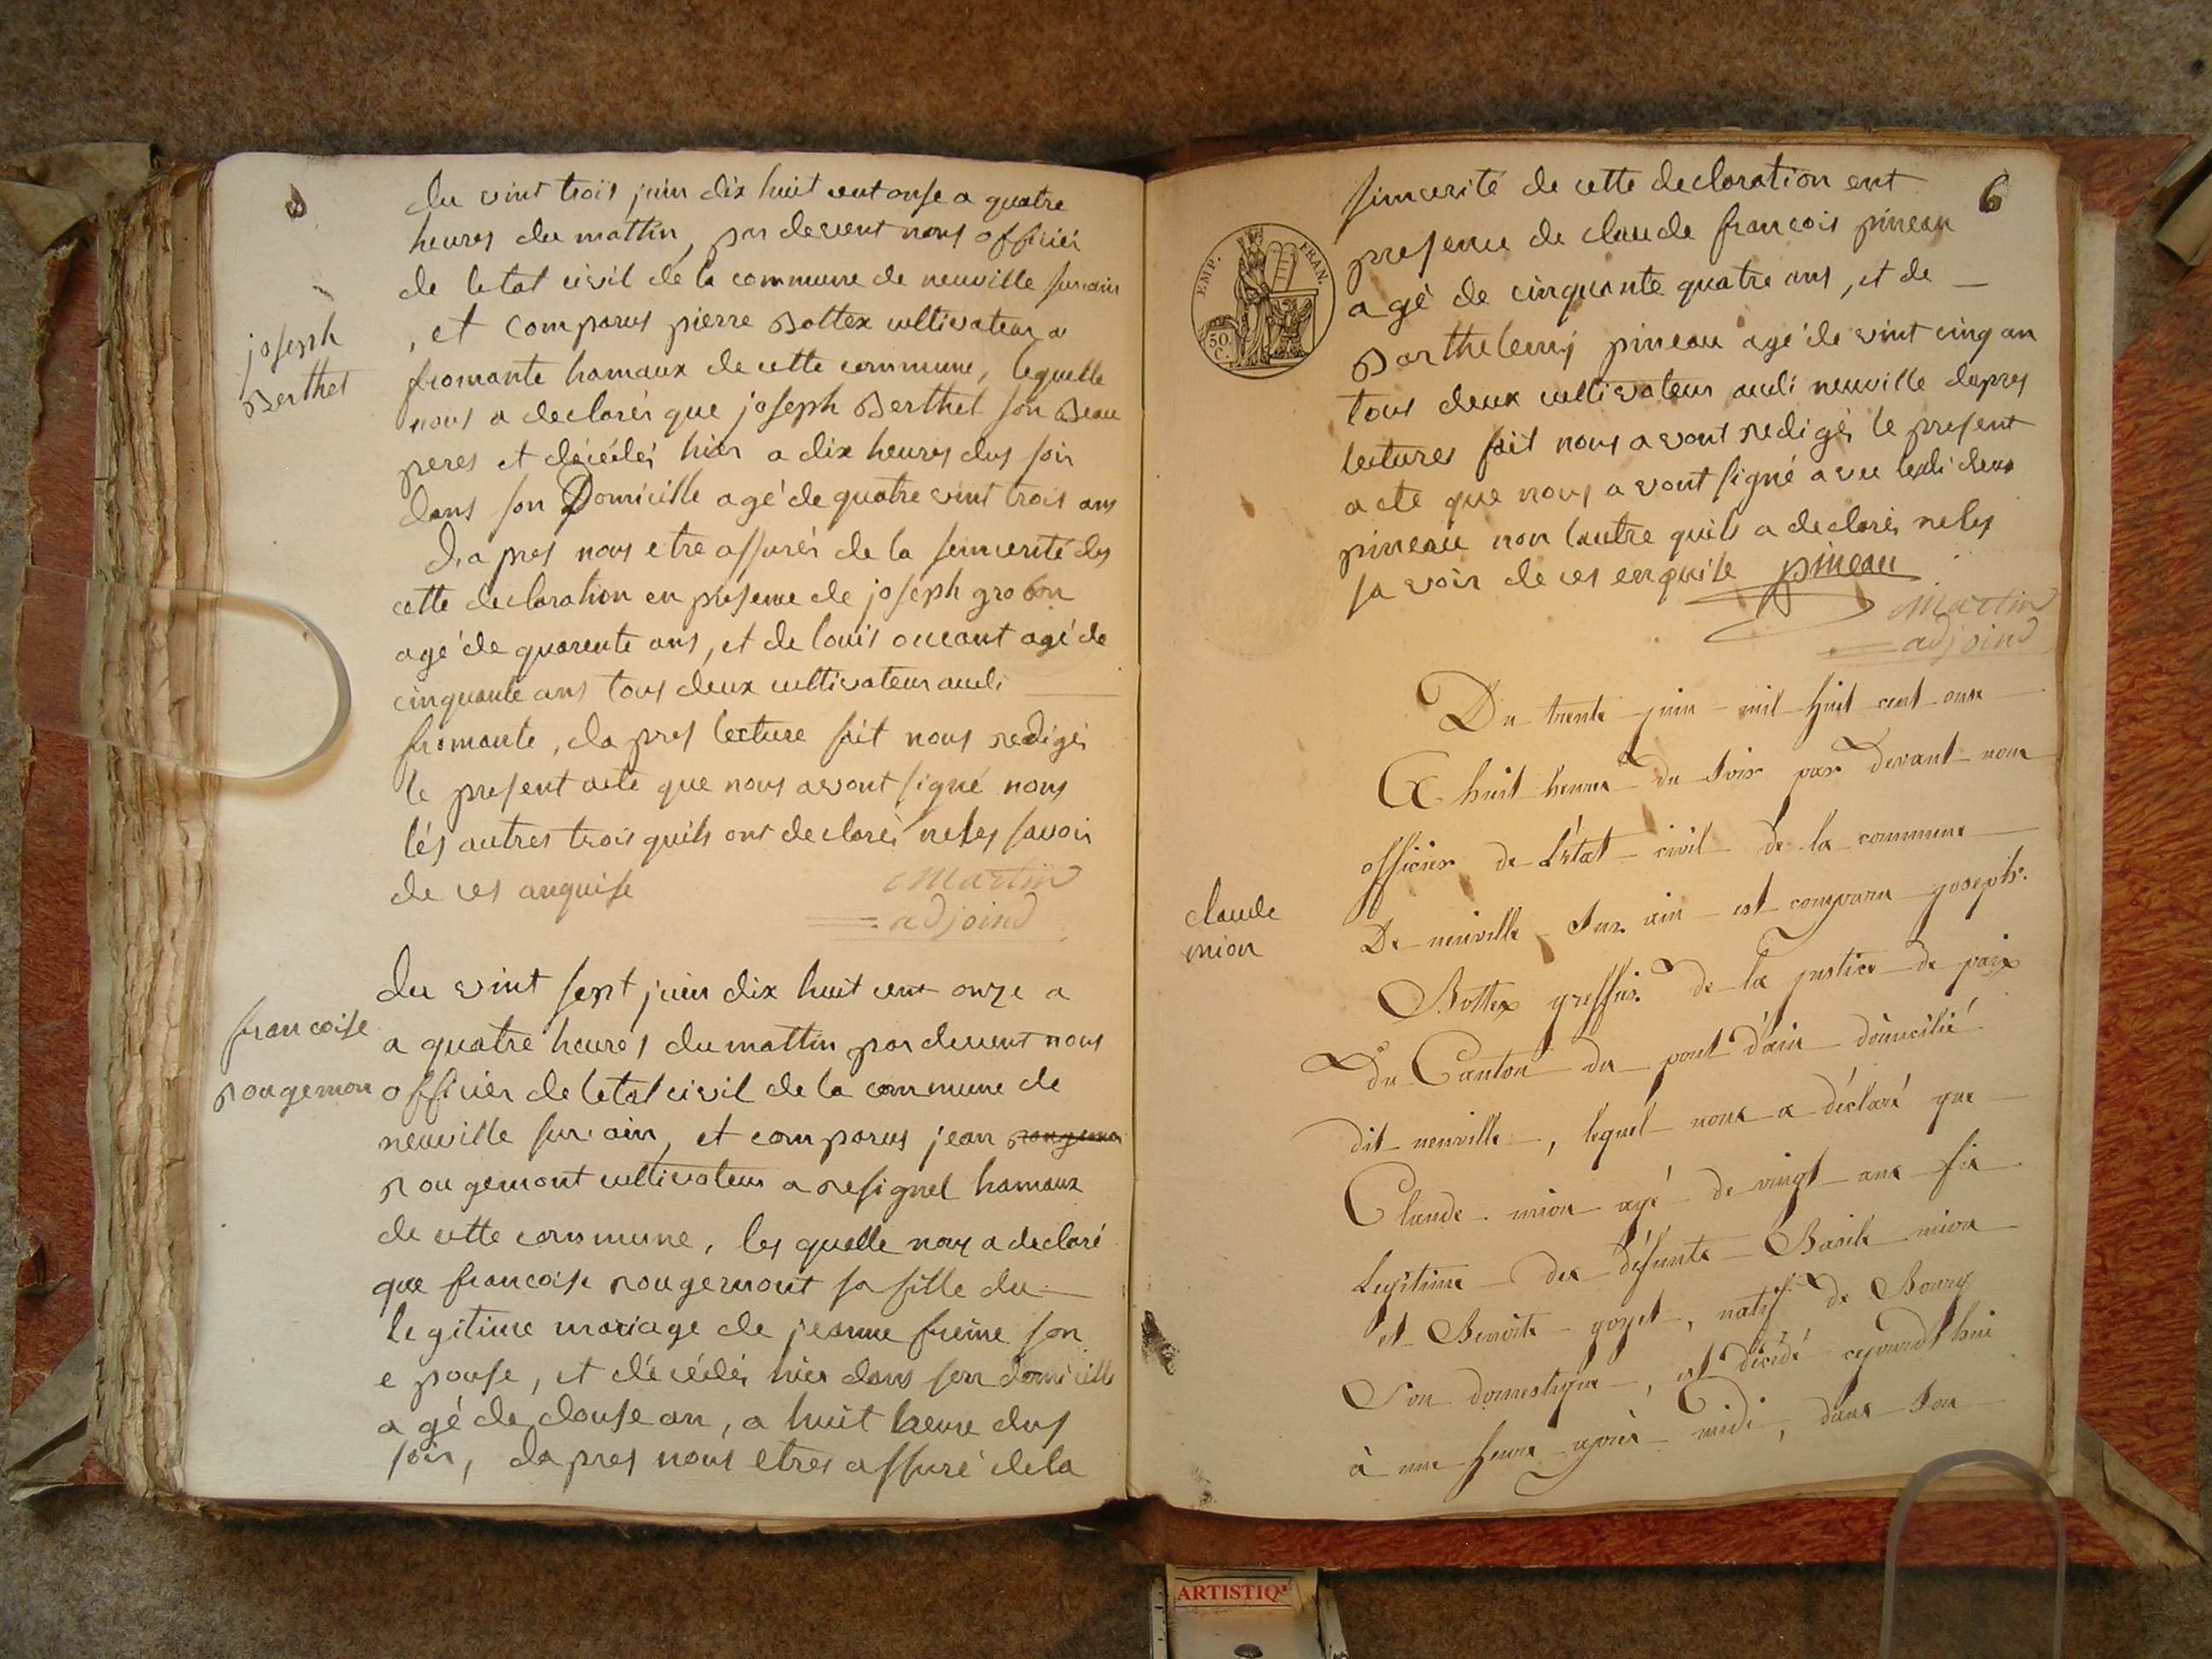 du vint trois juin dix huit cent onse a quatre
heures du mattin, par devent nous officiér
de letat civil de la commune de neuville sur ain
, et comparus pierre Bottex cultivateur a
fromante hamaux de cette commune, lequelle
nous a declarér que joseph Berthet son Beau
peres et décédér hier a dix heures dus soir
dans son Domicille agé de quatre vint trois ans
da pres nous etre assurér de la sincerité des
cette declaration en presence de joseph grobon
agé de quarente ans, et de louis occant agé de
cinquante ans tous deux cultivateur audi
fromante, da pres lecture fait nous redigér
le present acte que nous avont signé nous
lés autres trois quils ont declarér neles savoir
de ces anquise
Martin
adjoind
joseph
Berthet
du vint sept juin dix huit cent onze a
a quatre heures du mattin par devent nous
officiér de letat civil de la commune de
neuville sur ain, et comparus jean rougemon
Rougemont cultivateur a resignel hamaux
de cette commune, les quelle nous a declaré
que francoise rougemont sa fille du
legitime mariage de jeanne freine son
epouse, et décédér hier dans son domicille
agé de douse an, a huit heure dus
soir, da pres nous etres assuré dela
francoise
rougemon
6
EMP. FRAN.
50 C.
sincerité de cette declaration ent
presence de claude francois pineau
agé de cinquante quatre ans, et de
Barthelemy pineau agé de vint cinq an
tous deux cultivateur audi neuville dapres
lectures fait nous avont redigér le present
acte que nous avont signé avec ledi
pineau non lautre quils a declarér neles
savoir de ces enquise pineau
Martin
adjoind
Du trente juin mil huit cent onse
A huit heures du soir par Devant nous
officier de L'état civil de la commune
De neuville Sur ain est comparu joseph
Bottex greffier de la justice de paix
Du Canton du pont d'ain domicilié
dit neuville, lequel nous a déclaré que
Claude mion agé de vingt ans fis
Legitime des défunts Basile mion
et Benoite goyet, natif de Bourg
Son domestique, est décédé cejourd'hui
à une heure après midi, dans Son
claude
mion
ARTISTIQ